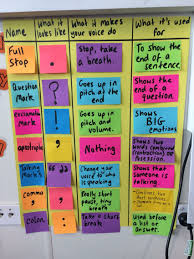 Name
What it looks like
What it makes your voice do
What it's used for
Full Stop
.
Stop, take a breath.
To show the end of a sentence.
Question Mark
?
Goes up in pitch at the end
Shows the end of a question.
Exclamation Mark
!
Goes up in pitch and volume.
Shows BIG emotions
apostrophe
'
Nothing
Shows two words combined (contraction) or possession.
Talking marks
Change your voice to who is speaking
Shows that someone is talking.
comma
,
Take a breath.
Colon
:
Take a short breath
Used before a list or an